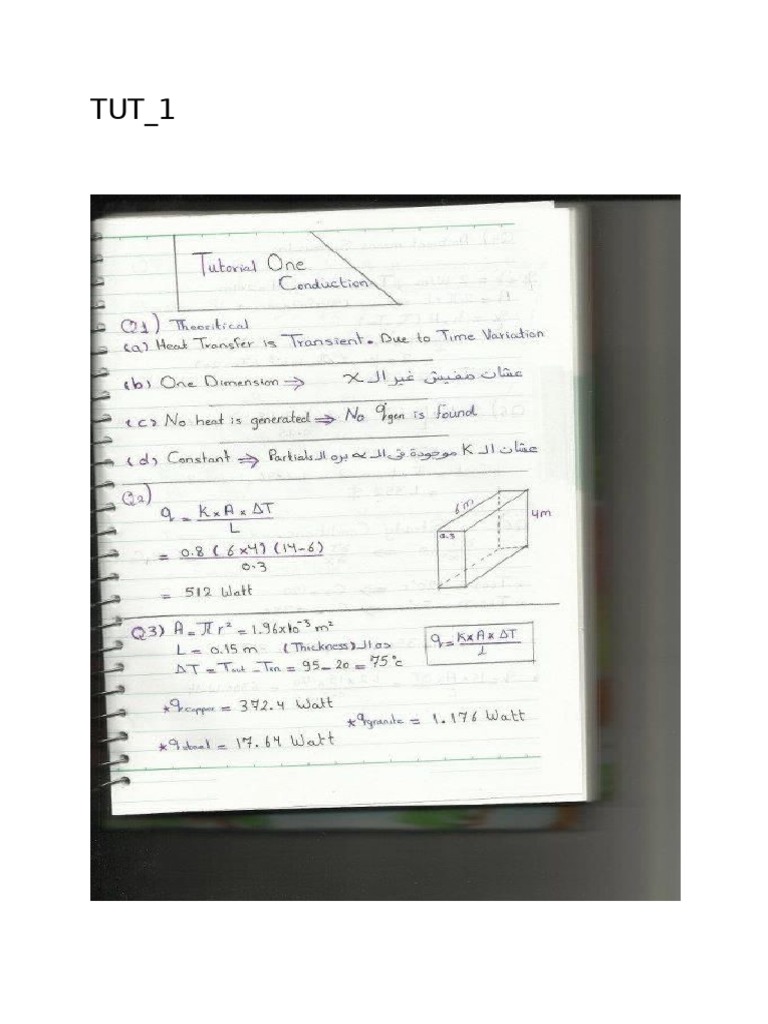 TUT_1
Tutorial One
Conduction
Q1) Theoritical
(a) Heat Transfer is Transient. Due to Time Variation
(b) One Dimension ⇒ عشان مفيش غير الـ x
(c) No heat is generated ⇒ No q̇gen is found
(d) Constant ⇒ عشان الـ K موجودة فى الـ α بره الـ Partials
Q2)
q = K×A×ΔT / L
= 0.8 (6×4) (14-6) / 0.3
= 512 Watt
6m
4m
0.3
Q3) A = π r² = 1.96×10⁻³ m²
L = 0.15 m (Thickness) ده الـ
ΔT = Tout - Tin = 95 - 20 = 75°c
q = K×A×ΔT / L
* qcopper = 372.4 Watt
* qgranite = 1.176 Watt
* qsteel = 17.64 Watt